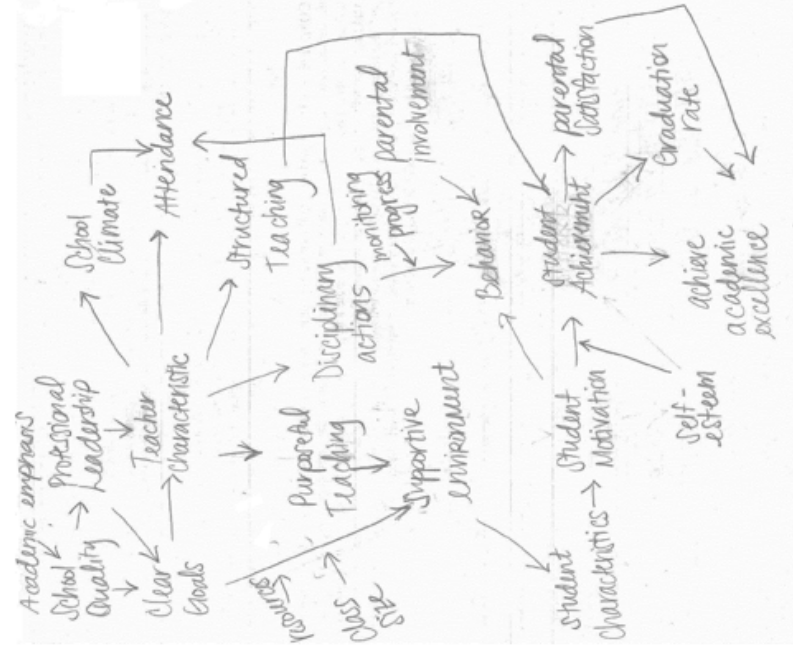 Academic emphasis
School
Quality
Professional
Leadership
School
Climate
Clear
Goals
Teacher
Characteristic
Attendance
Structured
Teaching
resources
Class
size
Purposeful
Teaching
Disciplinary
actions
monitoring
progress
parental
involvement
Supportive
environment
Behavior
Student
Characteristics
Student
Motivation
Student
Achievement
parental
Satisfaction
Self-
esteem
achieve
academic
excellence
Graduation
rate